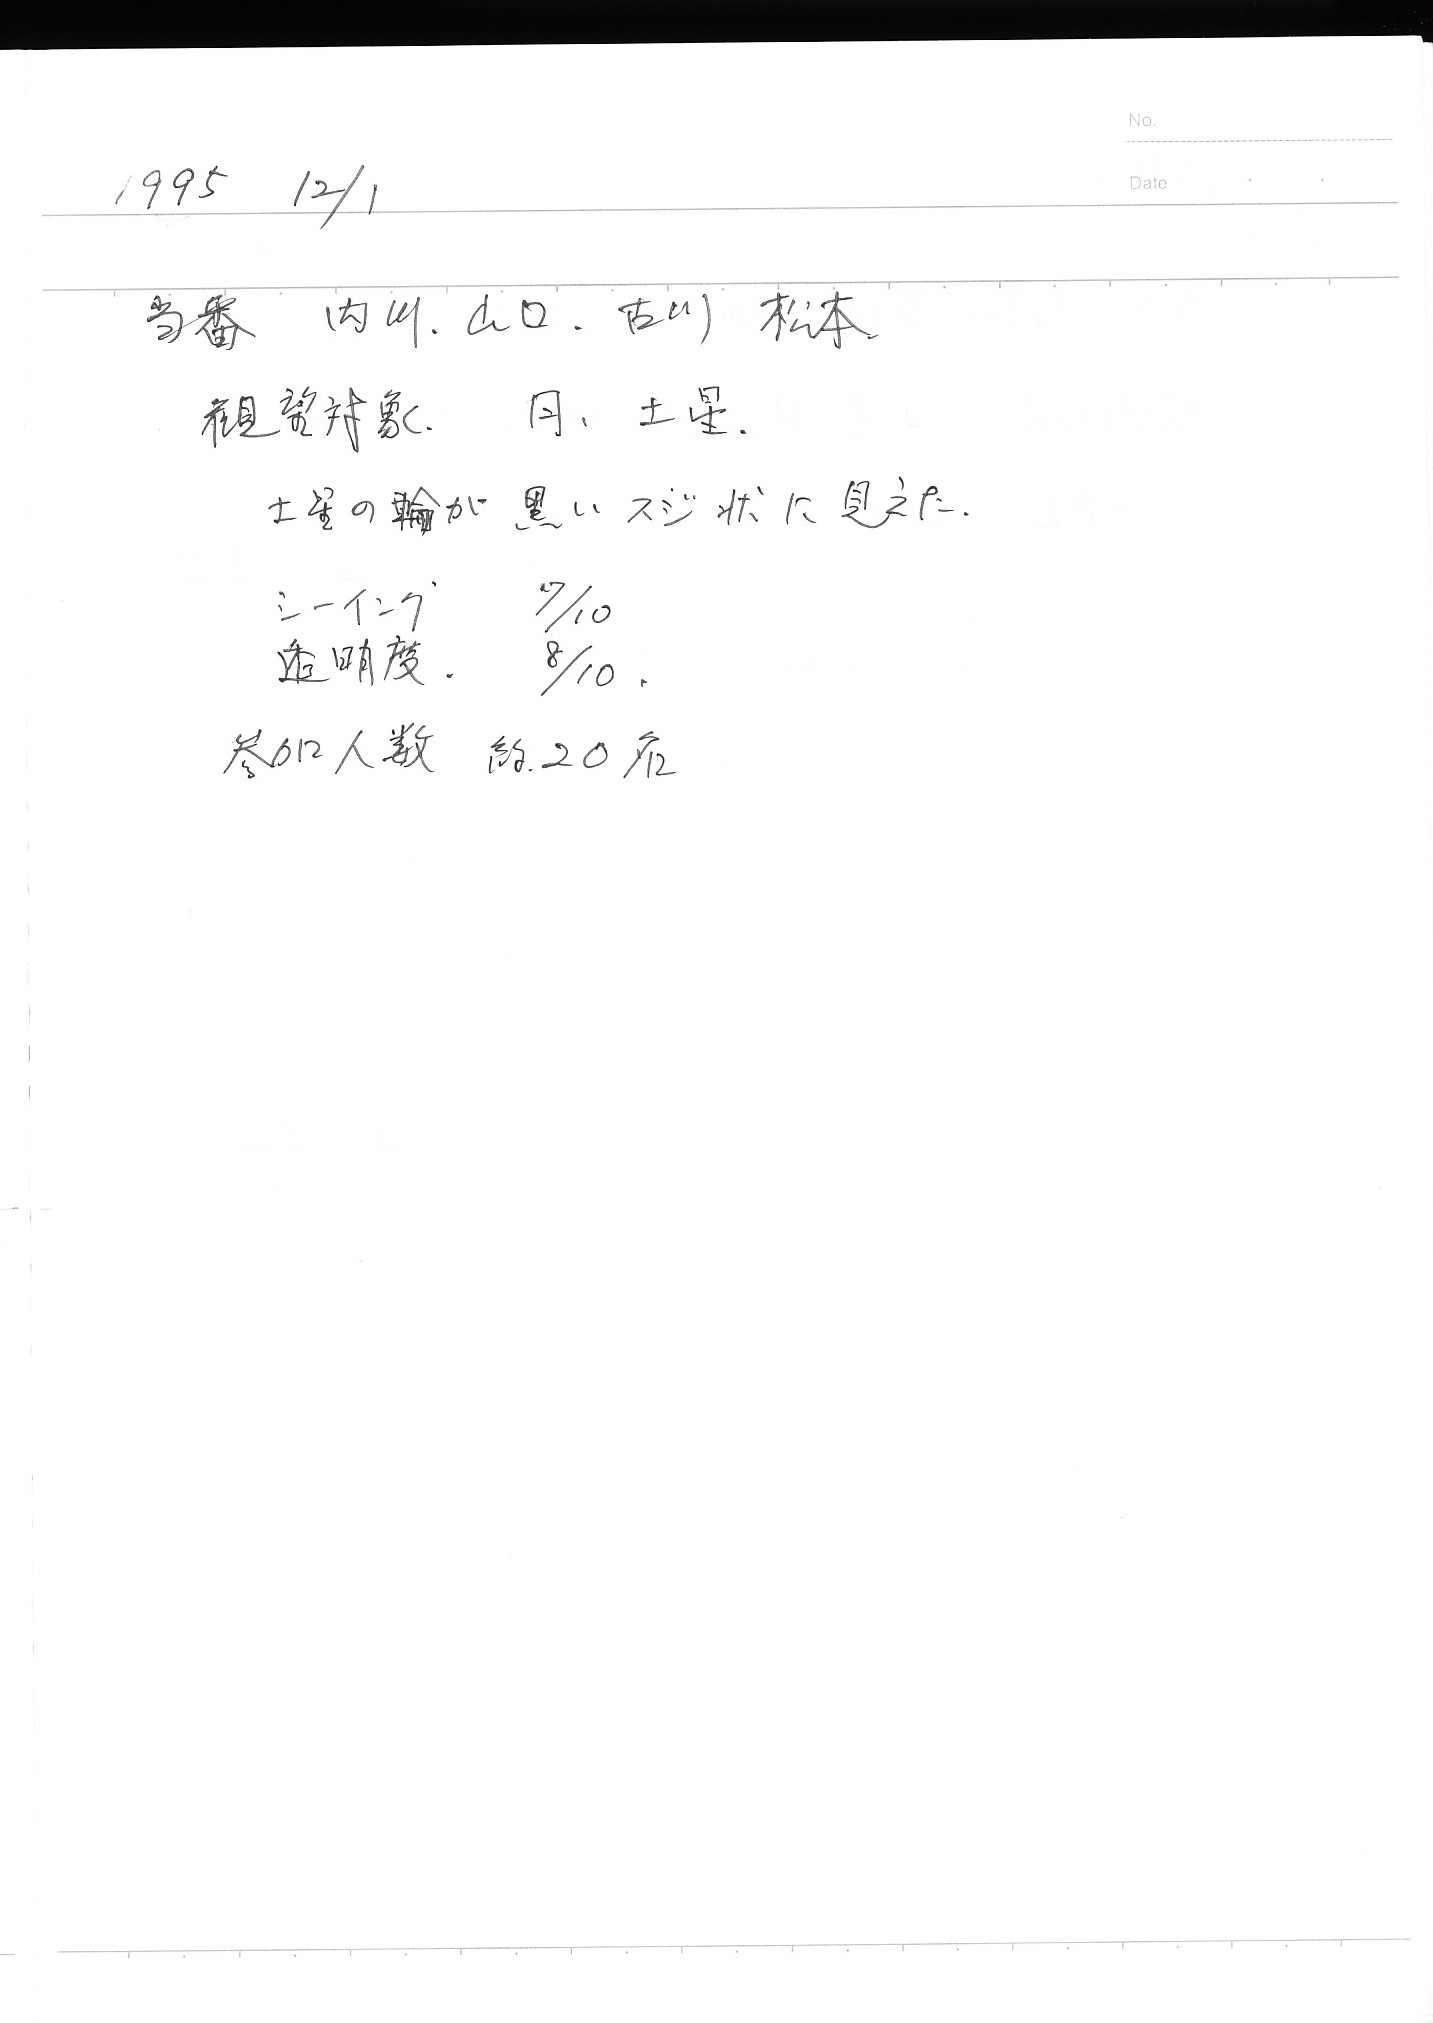 No.
Date
1995 12/1
当番 内川.山口.古川 松本
観望対象. 月、土星.
土星の輪が黒いスジ状に見えた.
シーイング 7/10
透明度. 8/10.
参加人数 約.20名